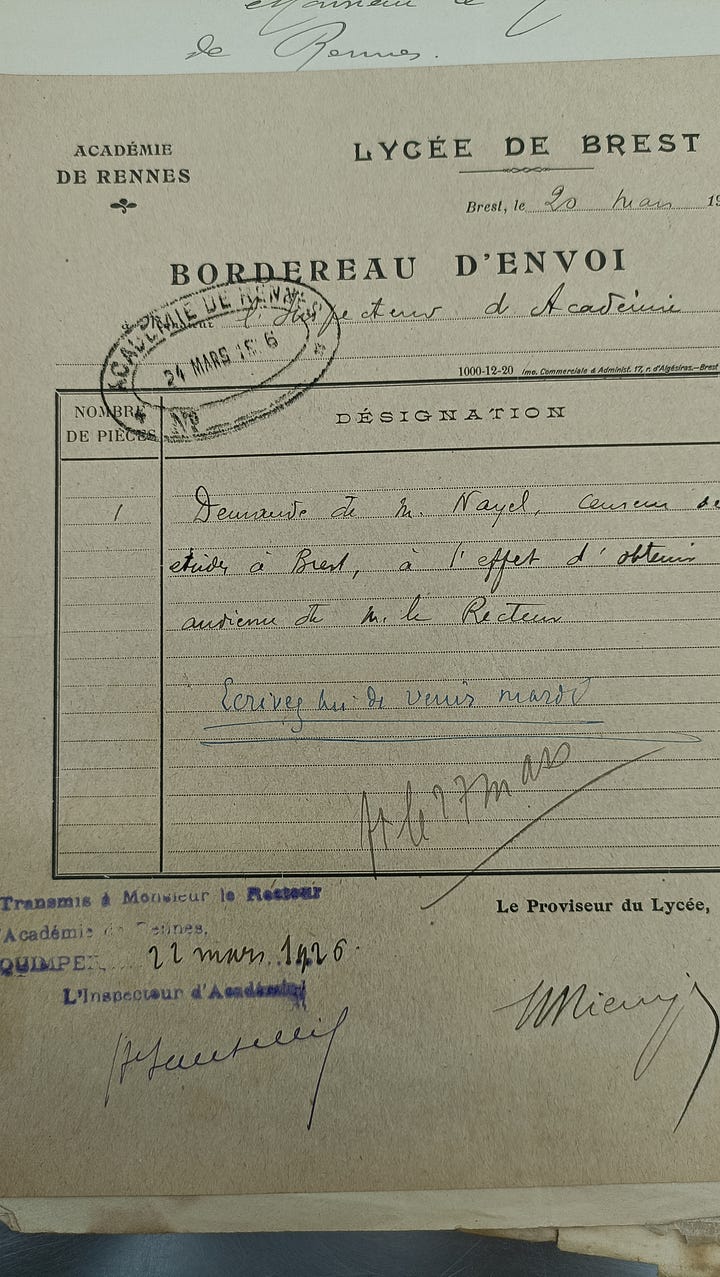 de Rennes.
ACADÉMIE
DE RENNES
LYCÉE DE BREST
Brest, le 20 mars 19
BORDEREAU D'ENVOI
l'Inspecteur d'Académie
ACADÉMIE DE RENNES
24 MARS
1000-12-20 Imp. Commerciale & Administ. 17, r. d'Algésiras.—Brest
NOMBRE
DE PIÈCES
DÉSIGNATION
1
Demande de M. Nayel, censeur
études à Brest, à l'effet d'obtenir
audience de M. le Recteur
Ecrivez lui de venir mardi
le 27 mars
Transmis à Monsieur le Recteur
Académie de Rennes,
QUIMPER 22 mars 1926.
L'Inspecteur d'Académie
Le Proviseur du Lycée,